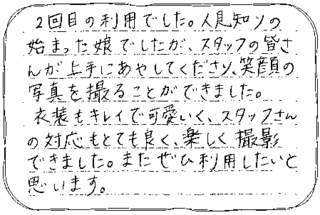 2回目の利用でした。人見知りの
始まった娘でしたが、スタッフの皆さ
んが上手にあやしてくださり、笑顔の
写真を撮ることができました。
衣装もキレイで可愛いく、スタッフさん
の対応もとても良く、楽しく撮影
できました。またぜひ利用したいと
思います。